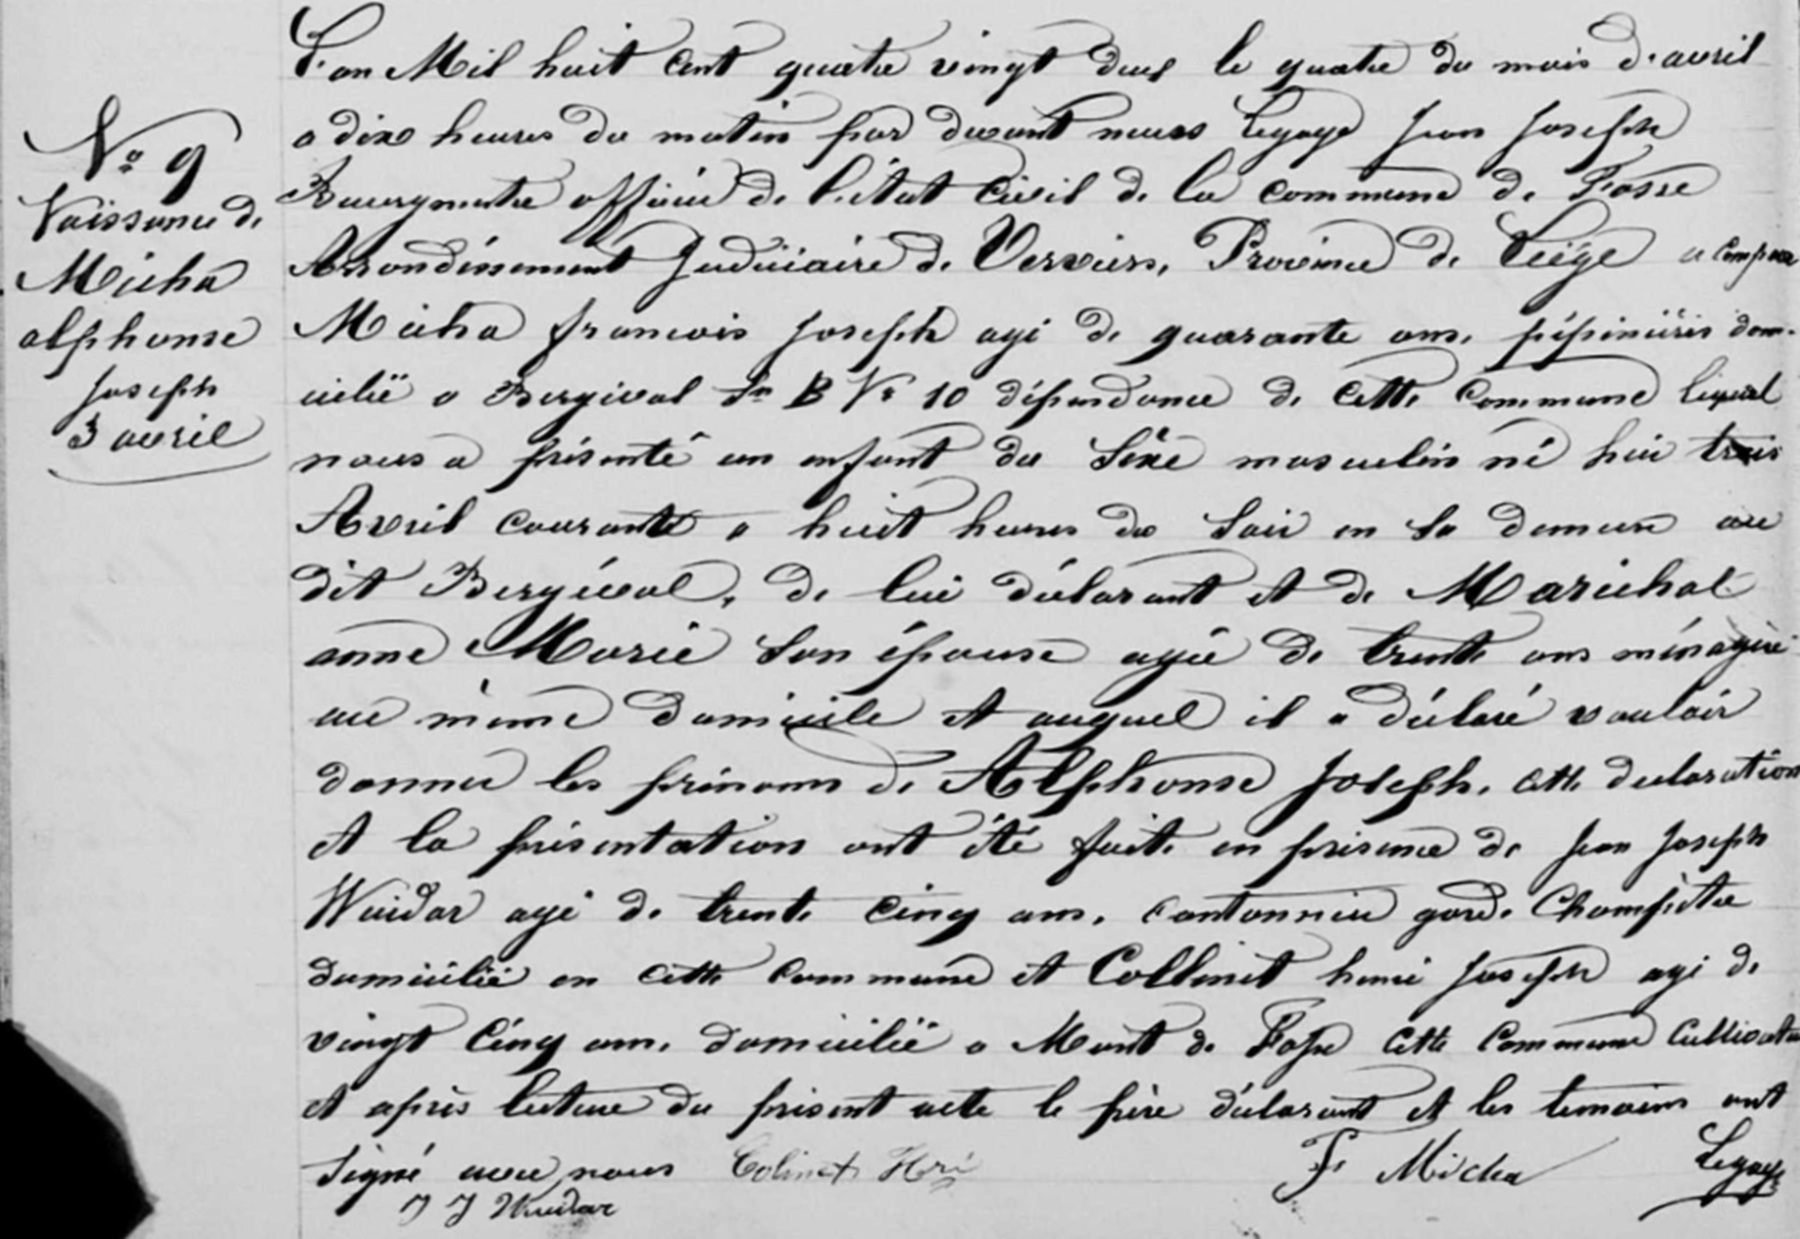 N° 9
Naissance de
Micha
alphonse
Joseph
3 avril
L'an Mil huit Cent quatre vingt deux le quatre du mois d'avril
a dix heures du matin par devant nous Legaye Jean Joseph
Bourgmestre officier de l'état Civil de la commune de Fosse
Arrondissement Judiciaire de Verviers, Province de Liége a comparu
Micha francois Joseph agé de quarante ans, pépiniériste dom-
icilié a Bergival Son B N° 10 dépendance de cette Commune lequel
nous a présenté un enfant du Séxe masculin né hier trois
Avril courant a huit heures du Soir en Sa demeure au
dit Bergéval, de lui déclarant et de Maréchal
anne Marie Son épouse agée de trente ans ménagère
au même domicile et auquel il a déclaré vouloir
donner les prénoms de Alphonse Joseph. cette declaration
et la présentation ont été faite en présence de Jean Joseph
Wuidar agé de trente cinq ans, cantonnier garde Champêtre
domicilié en cette commune et Collinet henri Joseph agé de
vingt Cinq ans, domicilié a Mont de Fosse cette Commune Cultivateur
et après lecture du présent acte le père déclarant et les temoins ont
Signé avec nous Colinet Hri F Micha Legaye
J J Wuidar